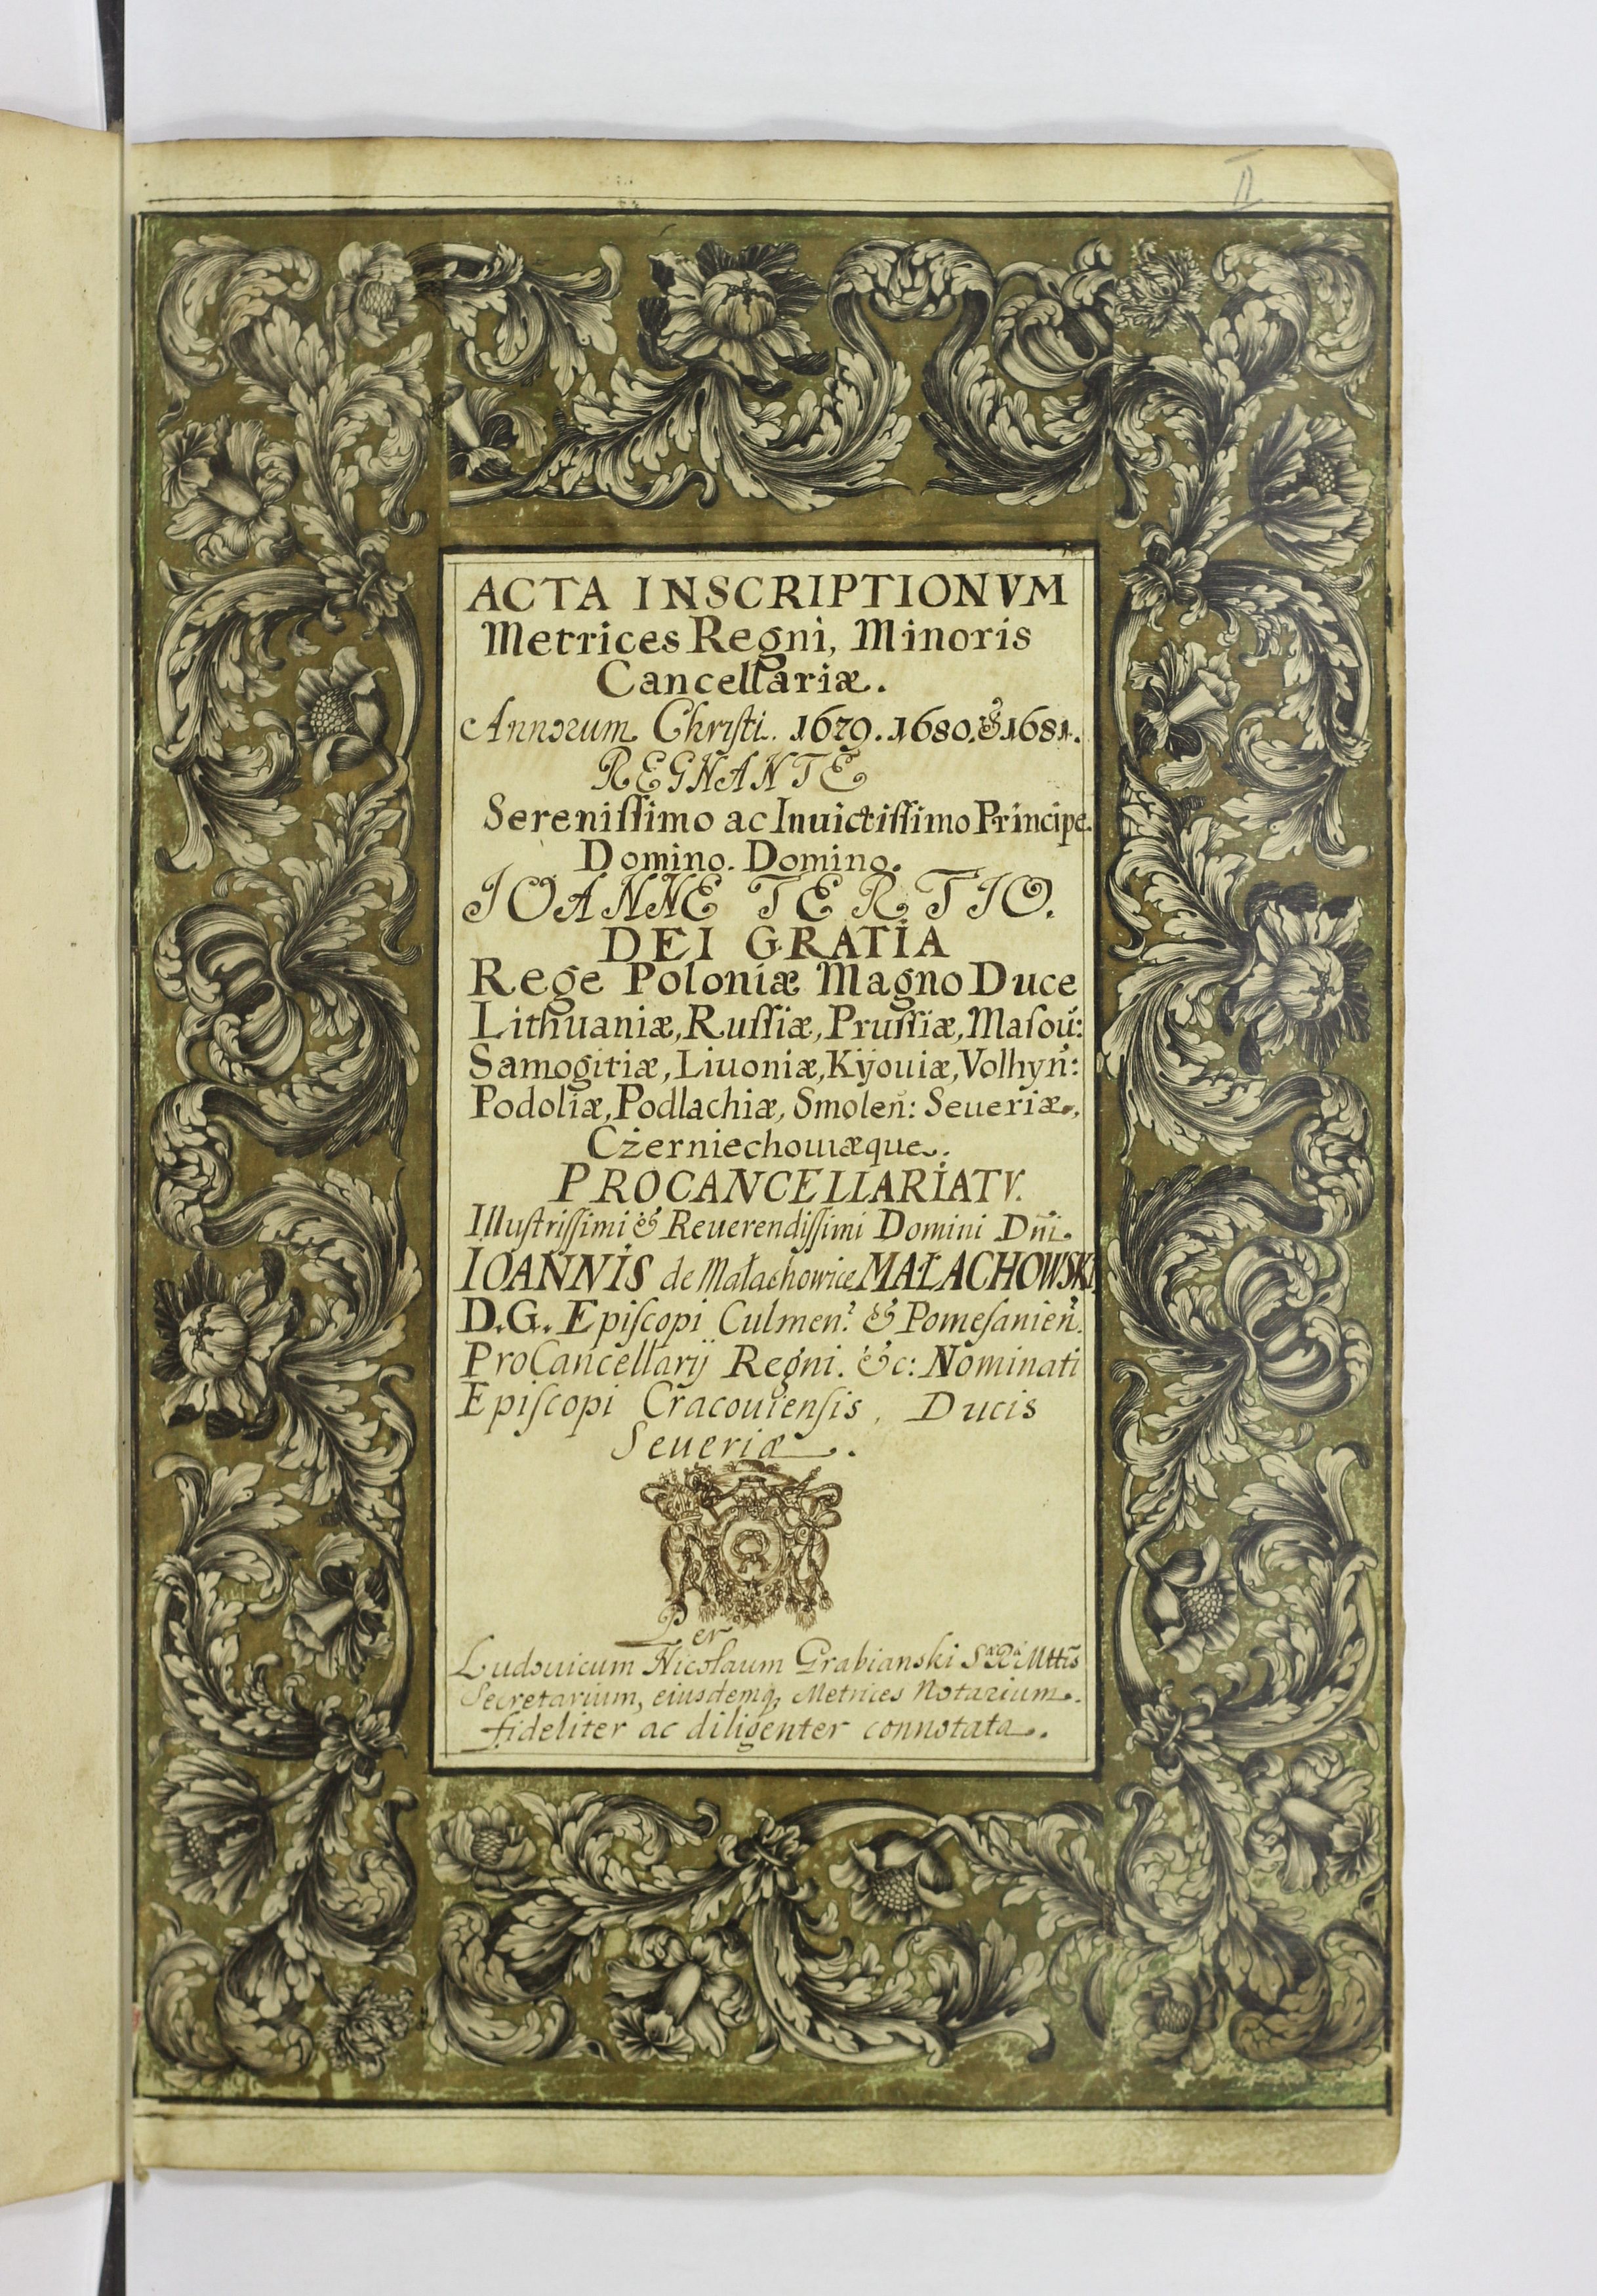 II
ACTA INSCRIPTIONVM
Metrices Regni, Minoris
Cancellariæ.
Annorum Christi. 1679. 1680. & 1681.
REGNANTE
Sereniſſimo ac Inuictiſſimo Principe.
Domino. Domino.
IOANNE TERTIO.
DEI GRATIA
Rege Poloniæ Magno Duce
Lithuaniæ, Ruſſiæ, Pruſſiæ, Maſou:
Samogitiæ, Liuoniæ, Kijouiæ, Volhyn̄:
Podoliæ, Podlachiæ, Smolen̄: Seueriæ,
Cżerniechouiæque.
PROCANCELLARIATV.
Illuſtriſſimi & Reuerendiſſimi Domini Dn̄i.
IOANNIS de Małachowice MAŁACHOWSKI,
D. G. Epiſcopi Culmen: & Pomeſanien̄.
ProCancellarij Regni. &c: Nominati
Epiſcopi Cracouienſis, Ducis
Seueriæ.
Per
Ludouicum Nicolaum Grabianski Sæ Ræ Mttis
Secretarium, eiusdemq, Metrices Notarium.
fideliter ac diligenter connotata.